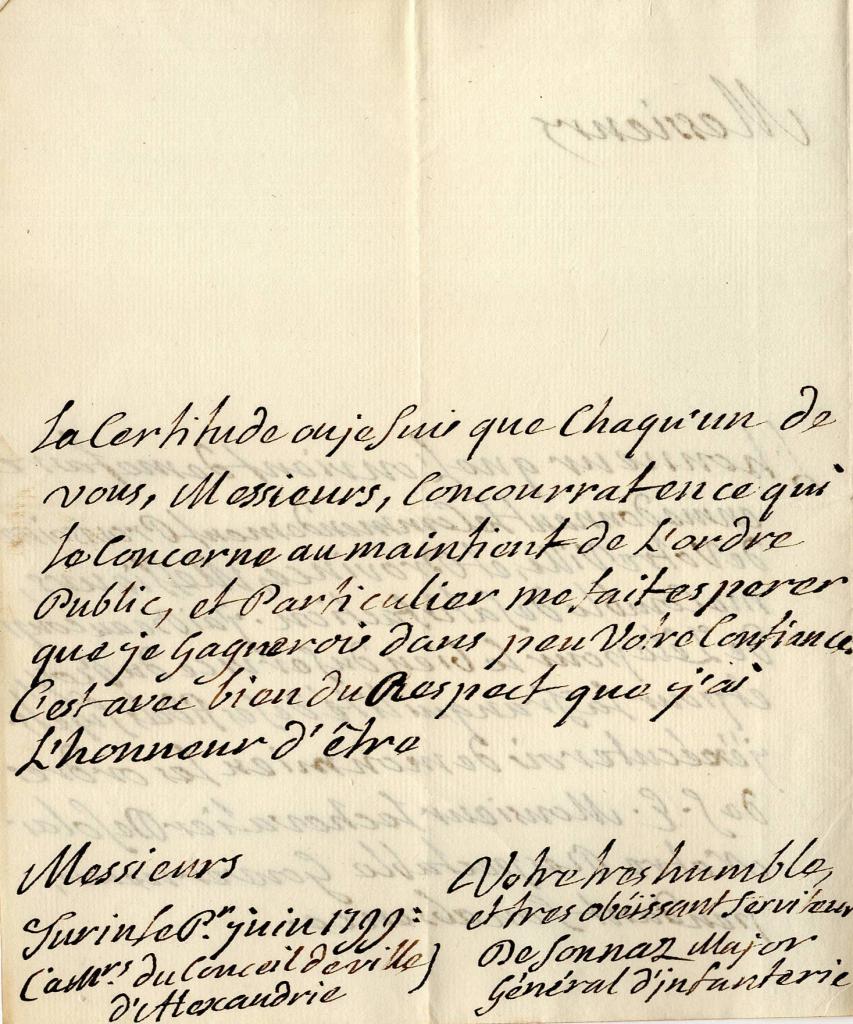 la Certitude ou je suis que Chaqu'un de
vous, Messieurs, Concourrat en ce qui
le Concerne au maintient de L'ordre
Public, et Particulier me fait esperer
que je Gagnerois dans peu Vôtre Confiance.
C'est avec bien du Respect que j'ai
L'honneur d'être
Messieurs
Turin le Pr. juin 1799:
(a Mrs. du Conceil de ville)
d'Alexandrie
Votre tres humble,
et tres obéissant Serviteur
De Sonnaz Major
Général d'infanterie